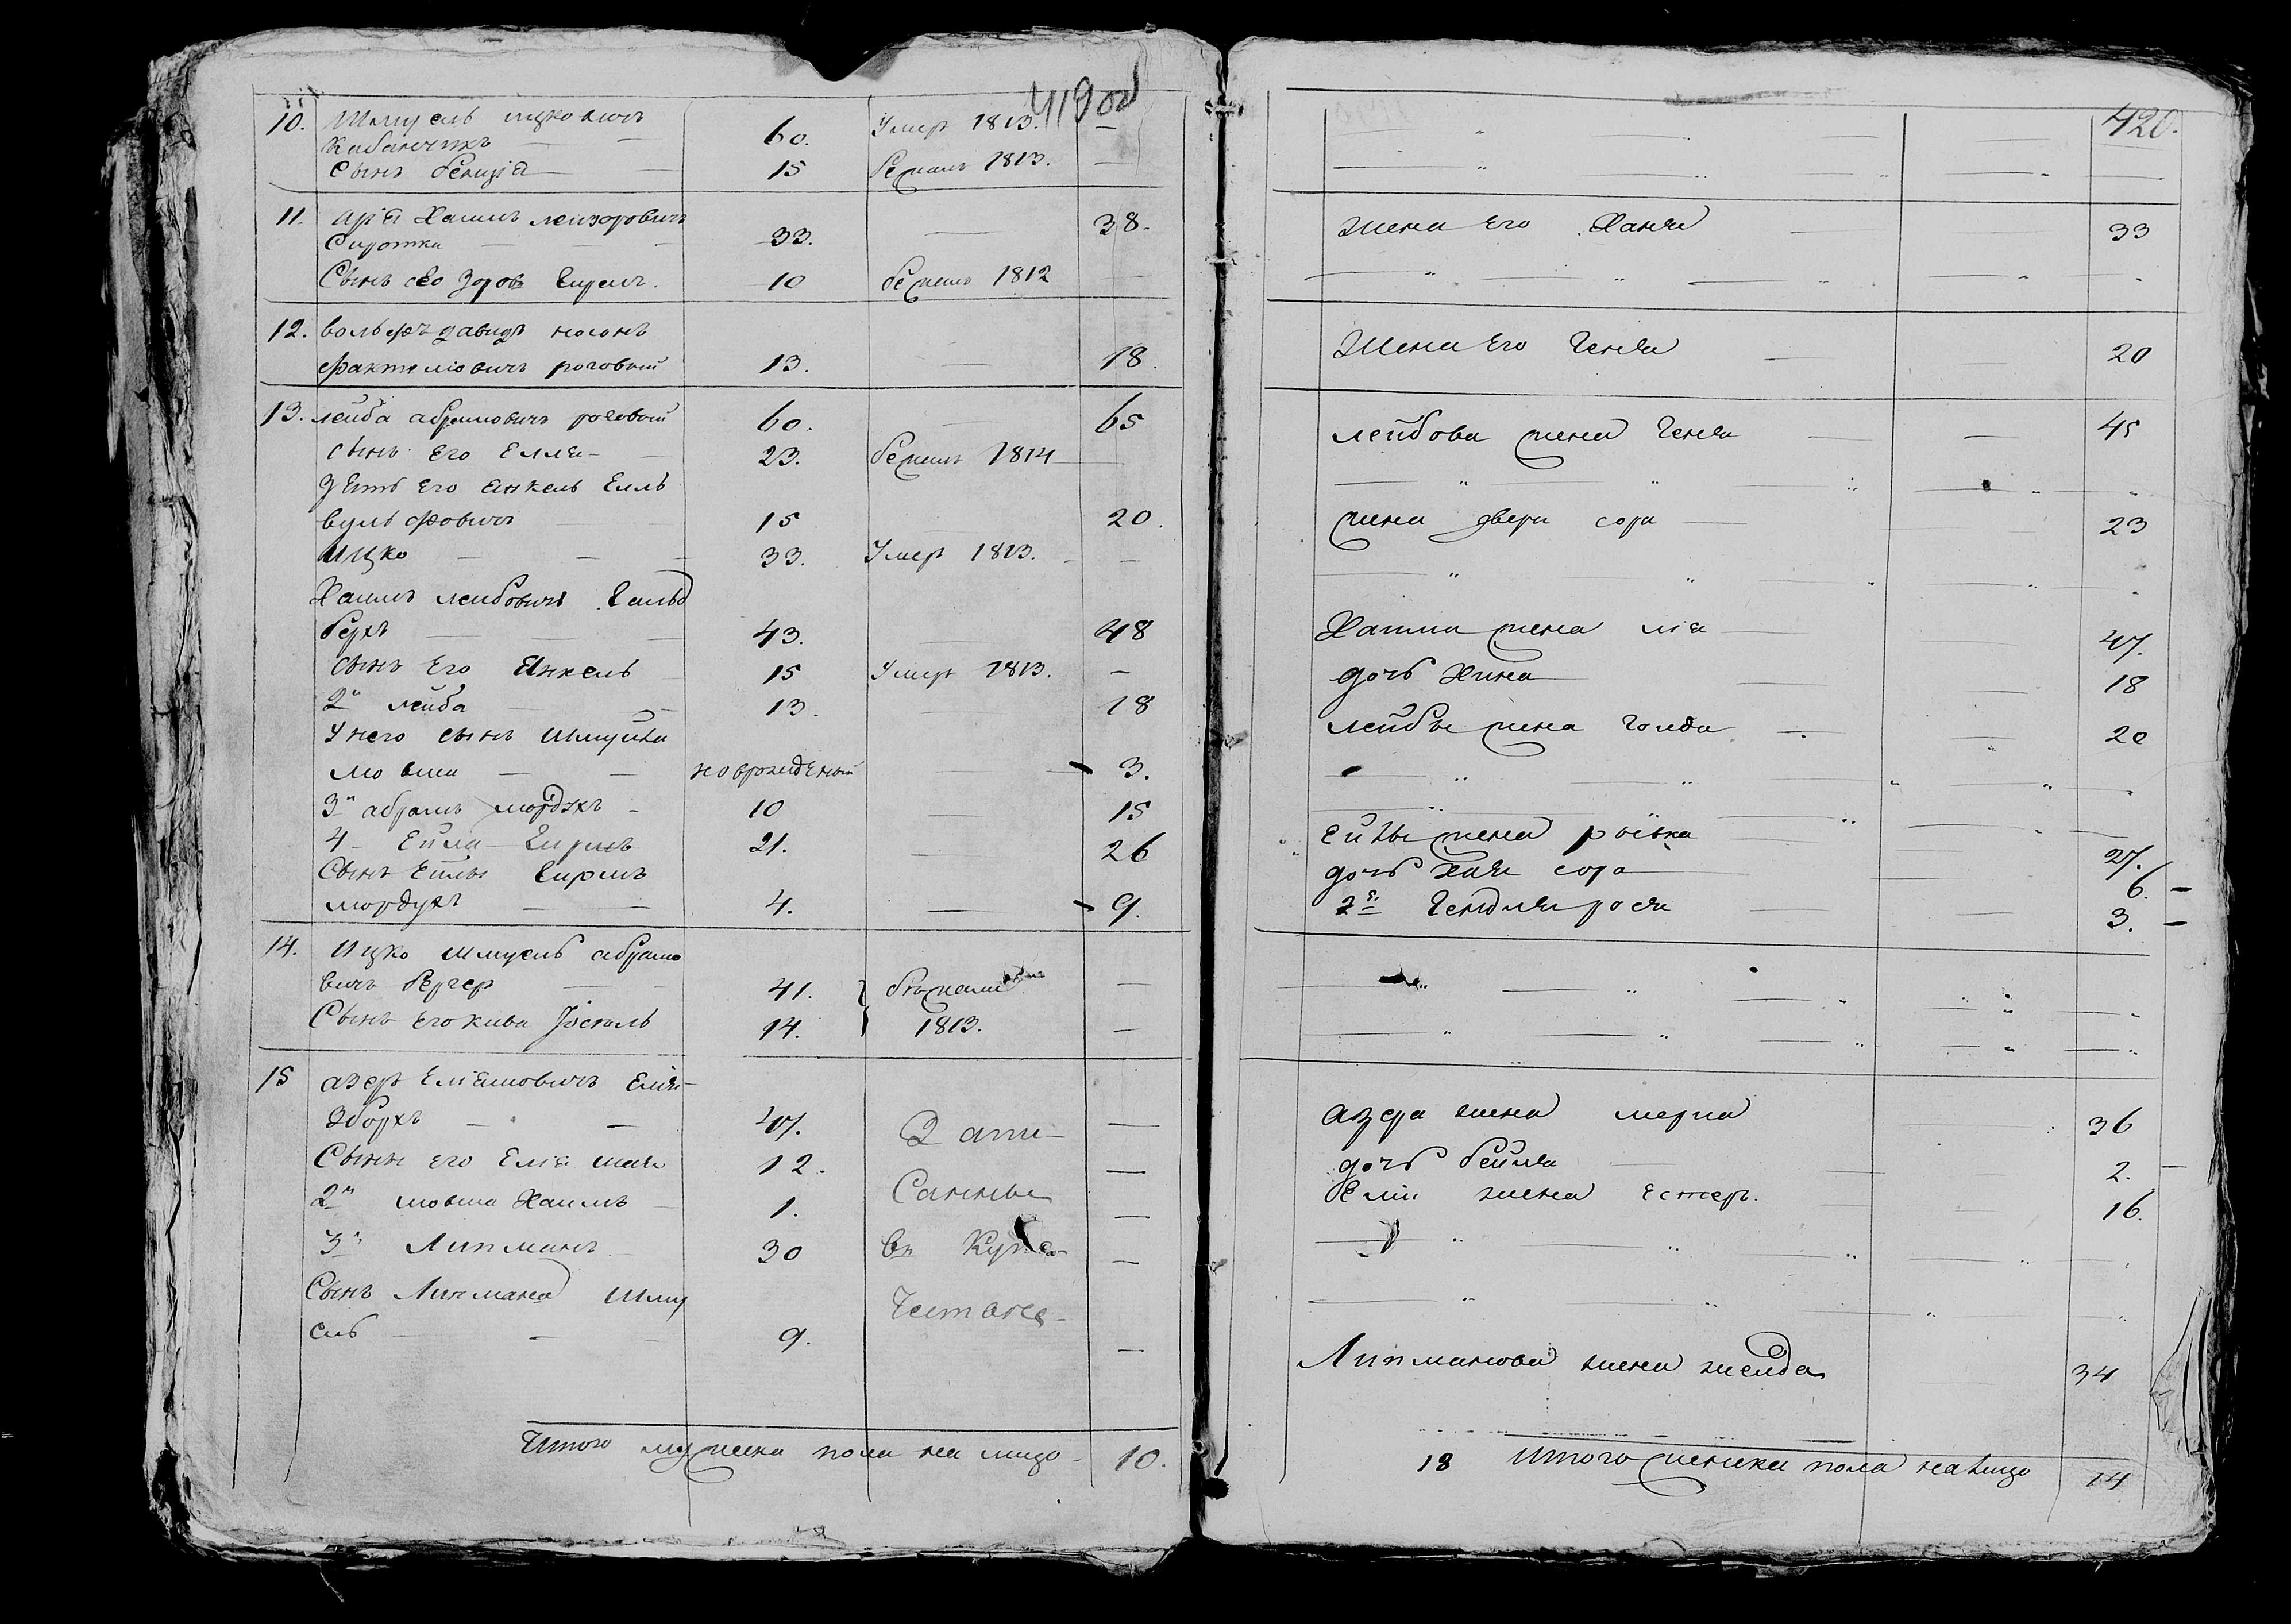 419об
10. Шмуель ицковичъ
Кабанчикъ — — 60. Умеръ 1813. —
Сынъ бенція — — 15 бежалъ 1813. —
11. арія Хаимъ лейзоровичъ
Сиротка — — 33. — 38.
Сынъ его 10 бежалъ 1812 —
12. вольфъ давидъ носонъ
роговый 13. — 18.
13. лейба абрамовичъ роговый 60. — 65
сынъ его Елля — 23. бежалъ 1814 —
зять его янкель Елль
вульфовичъ — 15 — 20.
Ицко — — — 33. Умеръ 1813. —
Хаимъ лейбовичъ Гольд
берхъ — — — 43. — 48
сынъ его Янкель 15 Умеръ 1813. —
2й лейба — — 13. — 18
У него сынъ Шмуйла
мовша — — новорожденый — 3.
3й абрамъ мордухъ — 10 — 15
4 — Ейла — 21. — 26
Сынъ Ейлы
мордухъ — — 4. — 9.
14. Ицко Шмуель абрамо
вичъ бергер — — 41. } бежали —
Сынъ его кива Йосель 14. } 1813. —
15 азеръ Еліяшовичъ Елін
— — 47. —
Сынъ его Елія 12. —
2й мовша Хаимъ — 1. Санные —
3й Липманъ 30 въ —
Сынъ Липмана Шму
ель — — — 9. —
Итого мужеска пола на лицо — 10.
420.
жена Его Ханя — — 33
Жена Его Геня — — 20
лейбова жена Геня — — 45
жена двера сора — 23
Хаима жена лія — 47.
дочь Хина — — 18
лейбы жена голда — — 20
Ейлы жена ройвка — — 27.
дочь Хая сора — — 6. —
2я Гендля рося — — 3. —
азера жена мерка — 36
дочь бейля — — 2. —
Еліи жена Естеръ. — — 16.
Липманова жена — 34
18 Итого женска пола на лицо 14